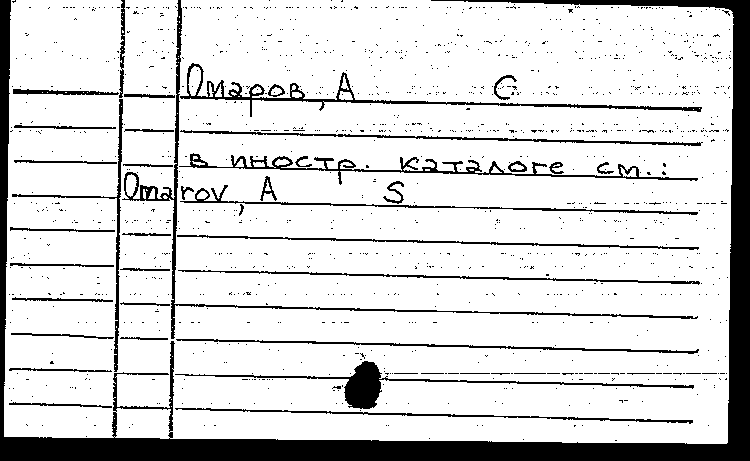 Омаров, А С
в иностр. каталоге см.:
Omarov, A S